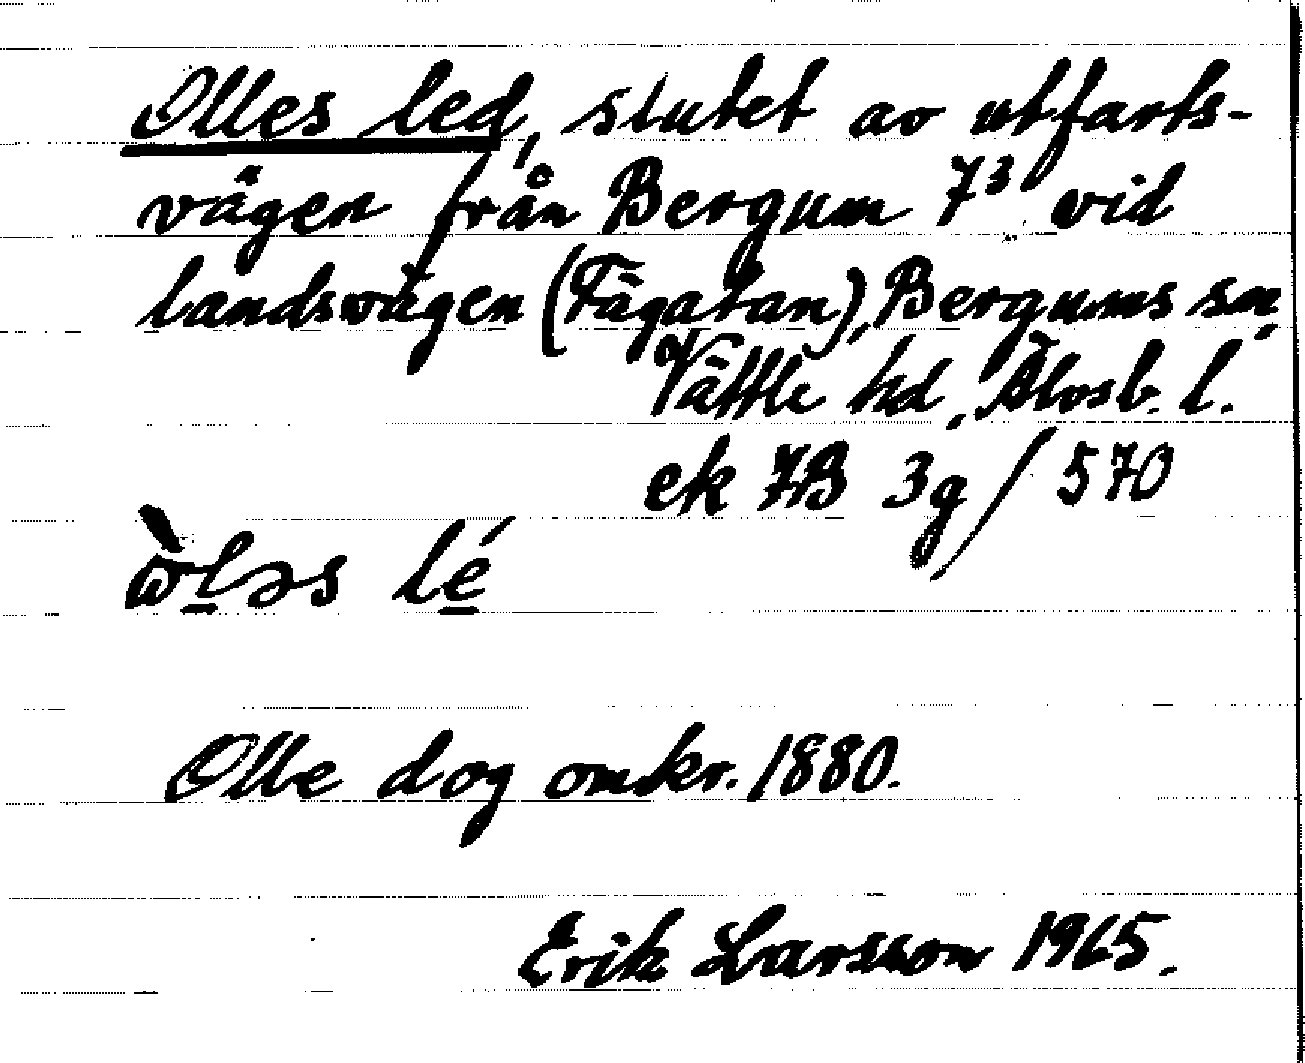 Olles led, slutet av utfarts-
vägen från Bergum 7³ vid
landsvägen (Fägatan), Bergums sn,
Vättle hd, Älvsb. l.
ek 7B 3g / 570
ὼl̲əs lé̲
Olle dog omkr. 1880.
Erik Larsson 1965.